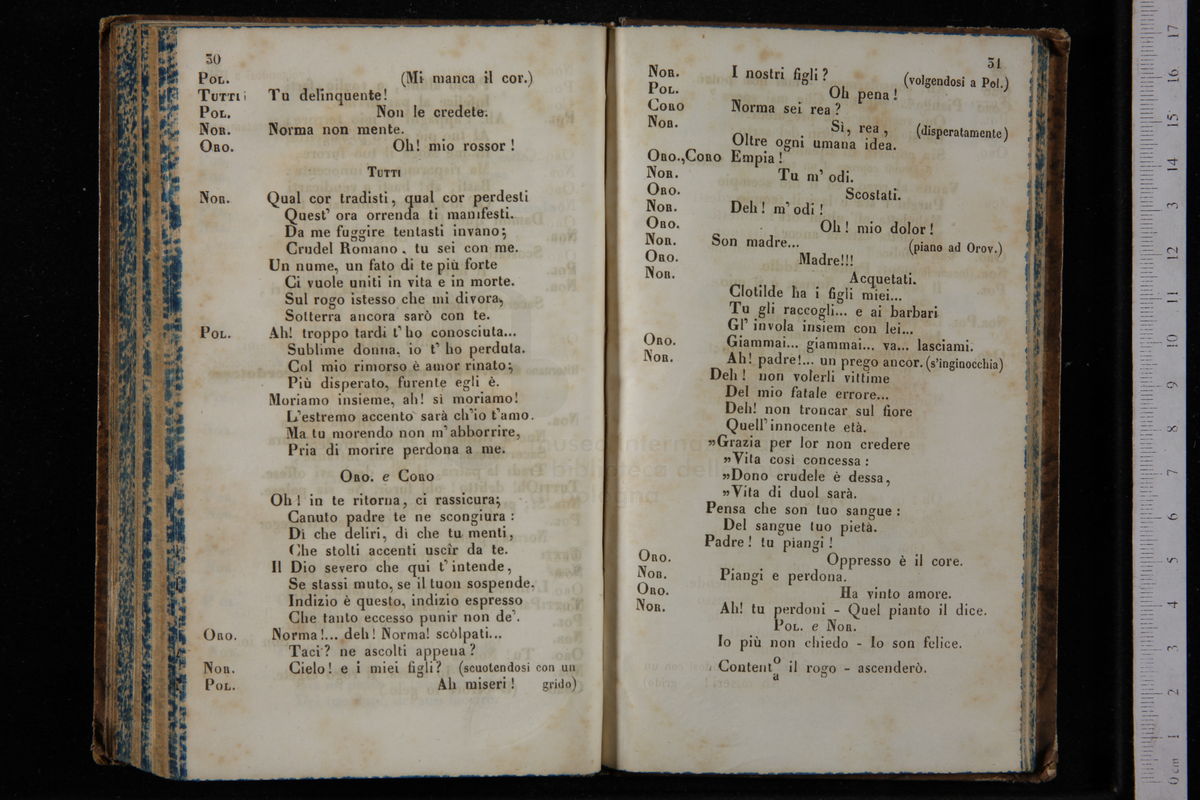 30
POL. (Mi manca il cor.)
TUTTI Tu delinquente!
POL. Non le credete.
NOR. Norma non mente.
ORO. Oh! mio rossor!
TUTTI
NOR. Qual cor tradisti, qual cor perdesti
Quest' ora orrenda ti manifesti.
Da me fuggire tentasti invano;
Crudel Romano, tu sei con me.
Un nume, un fato di te più forte
Ci vuole uniti in vita e in morte.
Sul rogo istesso che mi divora,
Sotterra ancora sarò con te.
POL. Ah! troppo tardi t' ho conosciuta...
Sublime donna, io t' ho perduta.
Col mio rimorso è amor rinato;
Più disperato, furente egli è.
Moriamo insieme, ah! sì moriamo!
L'estremo accento sarà ch'io t'amo.
Ma tu morendo non m'abborrire,
Pria di morire perdona a me.
ORO. e CORO
Oh! in te ritorna, ci rassicura;
Canuto padre te ne scongiura:
Di che deliri, di che tu menti,
Che stolti accenti uscîr da te.
Il Dio severo che qui t'intende,
Se stassi muto, se il tuon sospende,
Indizio è questo, indizio espresso
Che tanto eccesso punir non de'.
ORO. Norma!... deh! Norma! scòlpati...
Taci? ne ascolti appena?
NOR. Cielo! e i miei figli? (scuotendosi con un
POL. Ah miseri! grido)
31
NOR. I nostri figli? (volgendosi a Pol.)
POL. Oh pena!
CORO Norma sei rea?
NOR. Sì, rea, (disperatamente)
Oltre ogni umana idea.
ORO.,CORO Empia!
NOR. Tu m' odi.
ORO. Scostati.
NOR. Deh! m' odi!
ORO. Oh! mio dolor!
NOR. Son madre... (piano ad Orov.)
ORO. Madre!!!
NOR. Acquetati.
Clotilde ha i figli miei...
Tu gli raccogli... e ai barbari
Gl' invola insiem con lei...
ORO. Giammai... giammai... va... lasciami.
NOR. Ah! padre!... un prego ancor. (s'inginocchia)
Deh! non volerli vittime
Del mio fatale errore...
Deh! non troncar sul fiore
Quell'innocente età.
»Grazia per lor non credere
»Vita così concessa:
»Dono crudele è dessa,
»Vita di duol sarà.
Pensa che son tuo sangue:
Del sangue tuo pietà.
Padre! tu piangi!
ORO. Oppresso è il core.
NOR. Piangi e perdona.
ORO. Ha vinto amore.
NOR. Ah! tu perdoni - Quel pianto il dice.
POL. e NOR.
Io più non chiedo - Io son felice.
Content o/a il rogo - ascenderò.